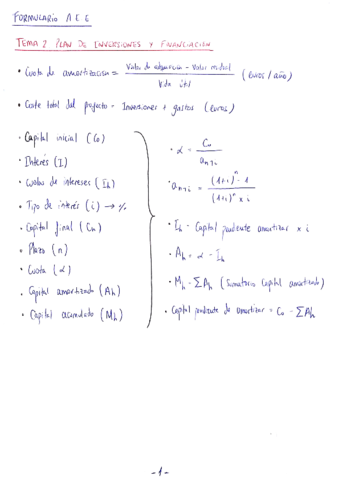 FORMULARIO A E E
TEMA 2 PLAN DE INVERSIONES Y FINANCIACIÓN
• Cuota de amortización = Valor de adquisición - Valor residual / Vida útil (euros / año)
• Coste total del proyecto = Inversiones + gastos (euros)
• Capital inicial (C₀)
• Interés (I)
• Cuota de intereses (Iₕ)
• Tipo de interés (i) → %
• Capital final (Cₙ)
• Plazo (n)
• Cuota (α)
• Capital amortizado (Aₕ)
• Capital acumulado (Mₕ)
• α = C₀ / aₙ¬ᵢ
• aₙ¬ᵢ = (1+i)ⁿ - 1 / (1+i)ⁿ × i
• Iₕ = Capital pendiente amortizar × i
• Aₕ = α - Iₕ
• Mₕ = ΣAₕ (Sumatorio capital amortizado)
• Capital pendiente de amortizar = C₀ - ΣAₕ
-1-